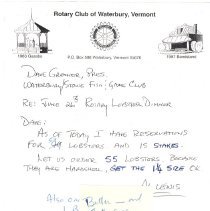 Rotary Club of Waterbury, Vermont
1960 Gazebo
P.O. Box 586 Waterbury, Vermont 05676
1997 Bandstand
DAVE GROWER, PRES.
WATERBURY/STOWE FISH & GAME CLUB
RE: JUNE 26 ROTARY LOBSTER DINNER
DAVE:
AS OF TODAY I HAVE RESERVATIONS
FOR 49 LOBSTERS AND 15 STEAKS.
LET US ORDER 55 LOBSTERS. BECAUSE
THEY ARE HARDSHELL, GET THE 1¼ SIZE OR
LEWIS
Butter and